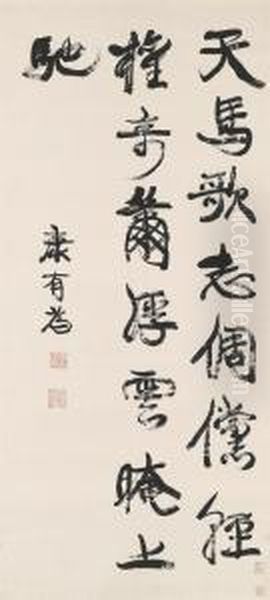 天馬歌志倜儻
權奇籋浮雲晻上
馳
康有為